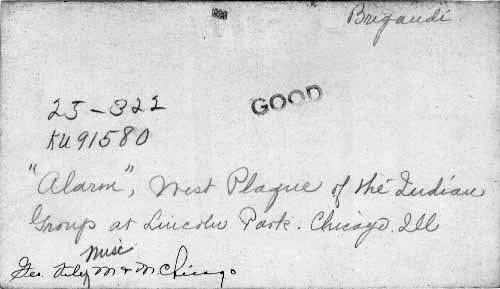 Brigandi
GOOD
25-322
KU91580
"Alarm", West Plaque of the Indian
Group at Lincoln Park. Chicago. Ill
Chicago